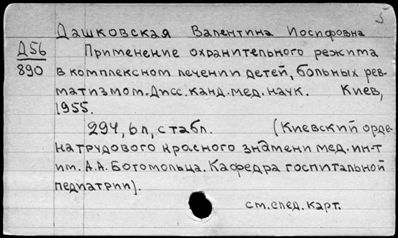 5
Дашковская Валентина Иосифовна
Д56
890
Применение охранительного режима
в комплексном лечении детей, больных рев-
матизмом. Дисс. канд. мед. наук. Киев,
1955.
294, 6 л, с табл. (Киевский орде-
на трудового красного знамени мед. ин-т
им. А.А. Богомольца. Кафедра госпитальной
педиатрии).
см. след. карт.